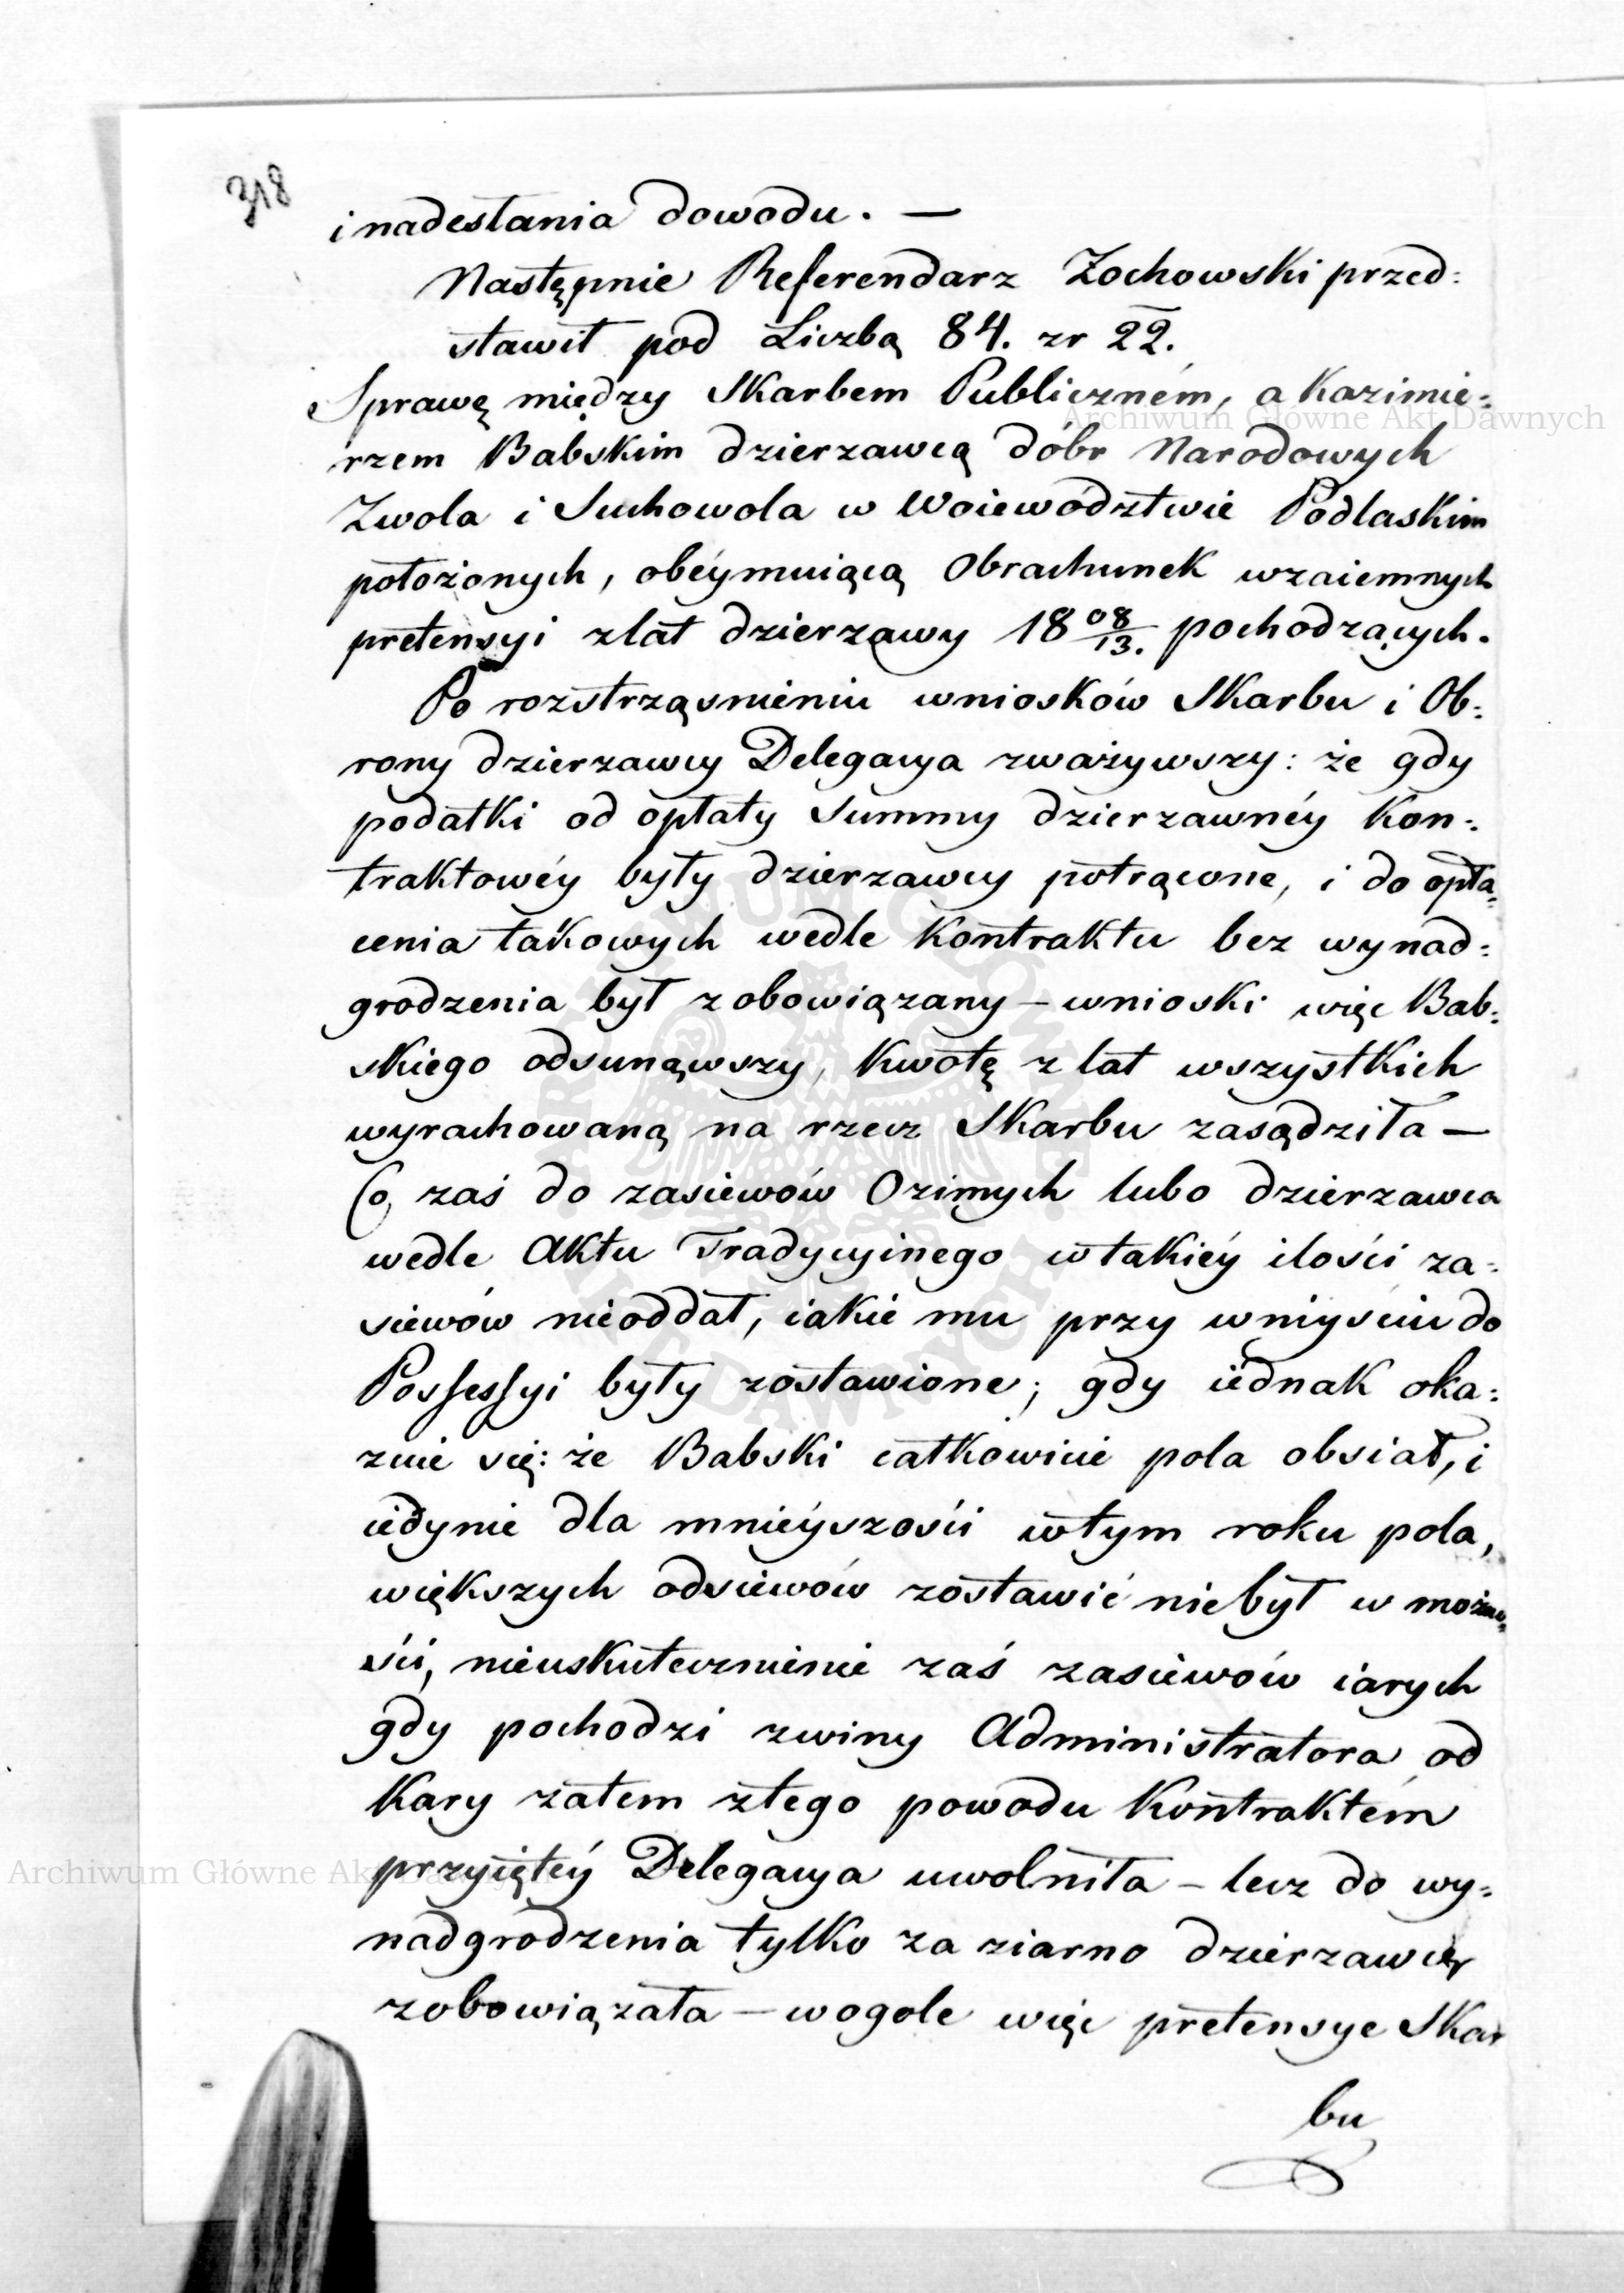 318
i nadesłania dowodu. —
Następnie Referendarz Zochowski przed:
stawił pod Liczbą 84. zr 22.
Sprawę między Skarbem Publiczném, a Kazimie:
rzem Babskim dzierzawcą dóbr Narodowych
Zwola i Suchowola w Woiewództwie Podlaskim
położonych, obéymuiącą Obrachunek wzaiemnych
pretensyi z lat dzierzawy 18 08/13. pochodzących.
Po rozstrząśnieniu wniosków Skarbu i Ob:
rony dzierzawcy Delegacya zważywszy: że gdy
podatki od opłaty Summy dzierzawnéy Kon:
traktowéy były dzierzawcy potrącone, i do opła:
cenia takowych wedle Kontraktu bez wynad:
grodzenia był zobowiązany — wnioski więc Bab:
skiego odsunąwszy, Kwotę z lat wszystkich
wyrachowaną na rzecz Skarbu zasądziła —
Co, zaś do zasiewów Ozimych lubo dzierzawca
wedle Aktu Tradycyinego w takiéy ilości za:
siewów nieoddał, iakie mu przy wniyściu do
Possessyi były zostawione; gdy iednak oka:
zuie się: że Babski całkowicie pola obsiał, i
iedynie dla mnieyszości w tym roku pola,
większych odsiewów zostawić niebył w możno:
ści, nieuskutecznienie zaś zasiewów iarych
gdy pochodzi z winy Administratora od
Kary zatem z tego powodu Kontraktém
przyiętéy Delegacya uwolniła — lecz do wy:
nadgrodzenia tylko za ziarno dzierzawcę
zobowiązała — wogole więc pretensye Skar
bu
Archiwum Główne Akt Dawnych
Archiwum Główne Akt Dawnych
ARCHIWUM GŁÓWNE AKT DAWNYCH